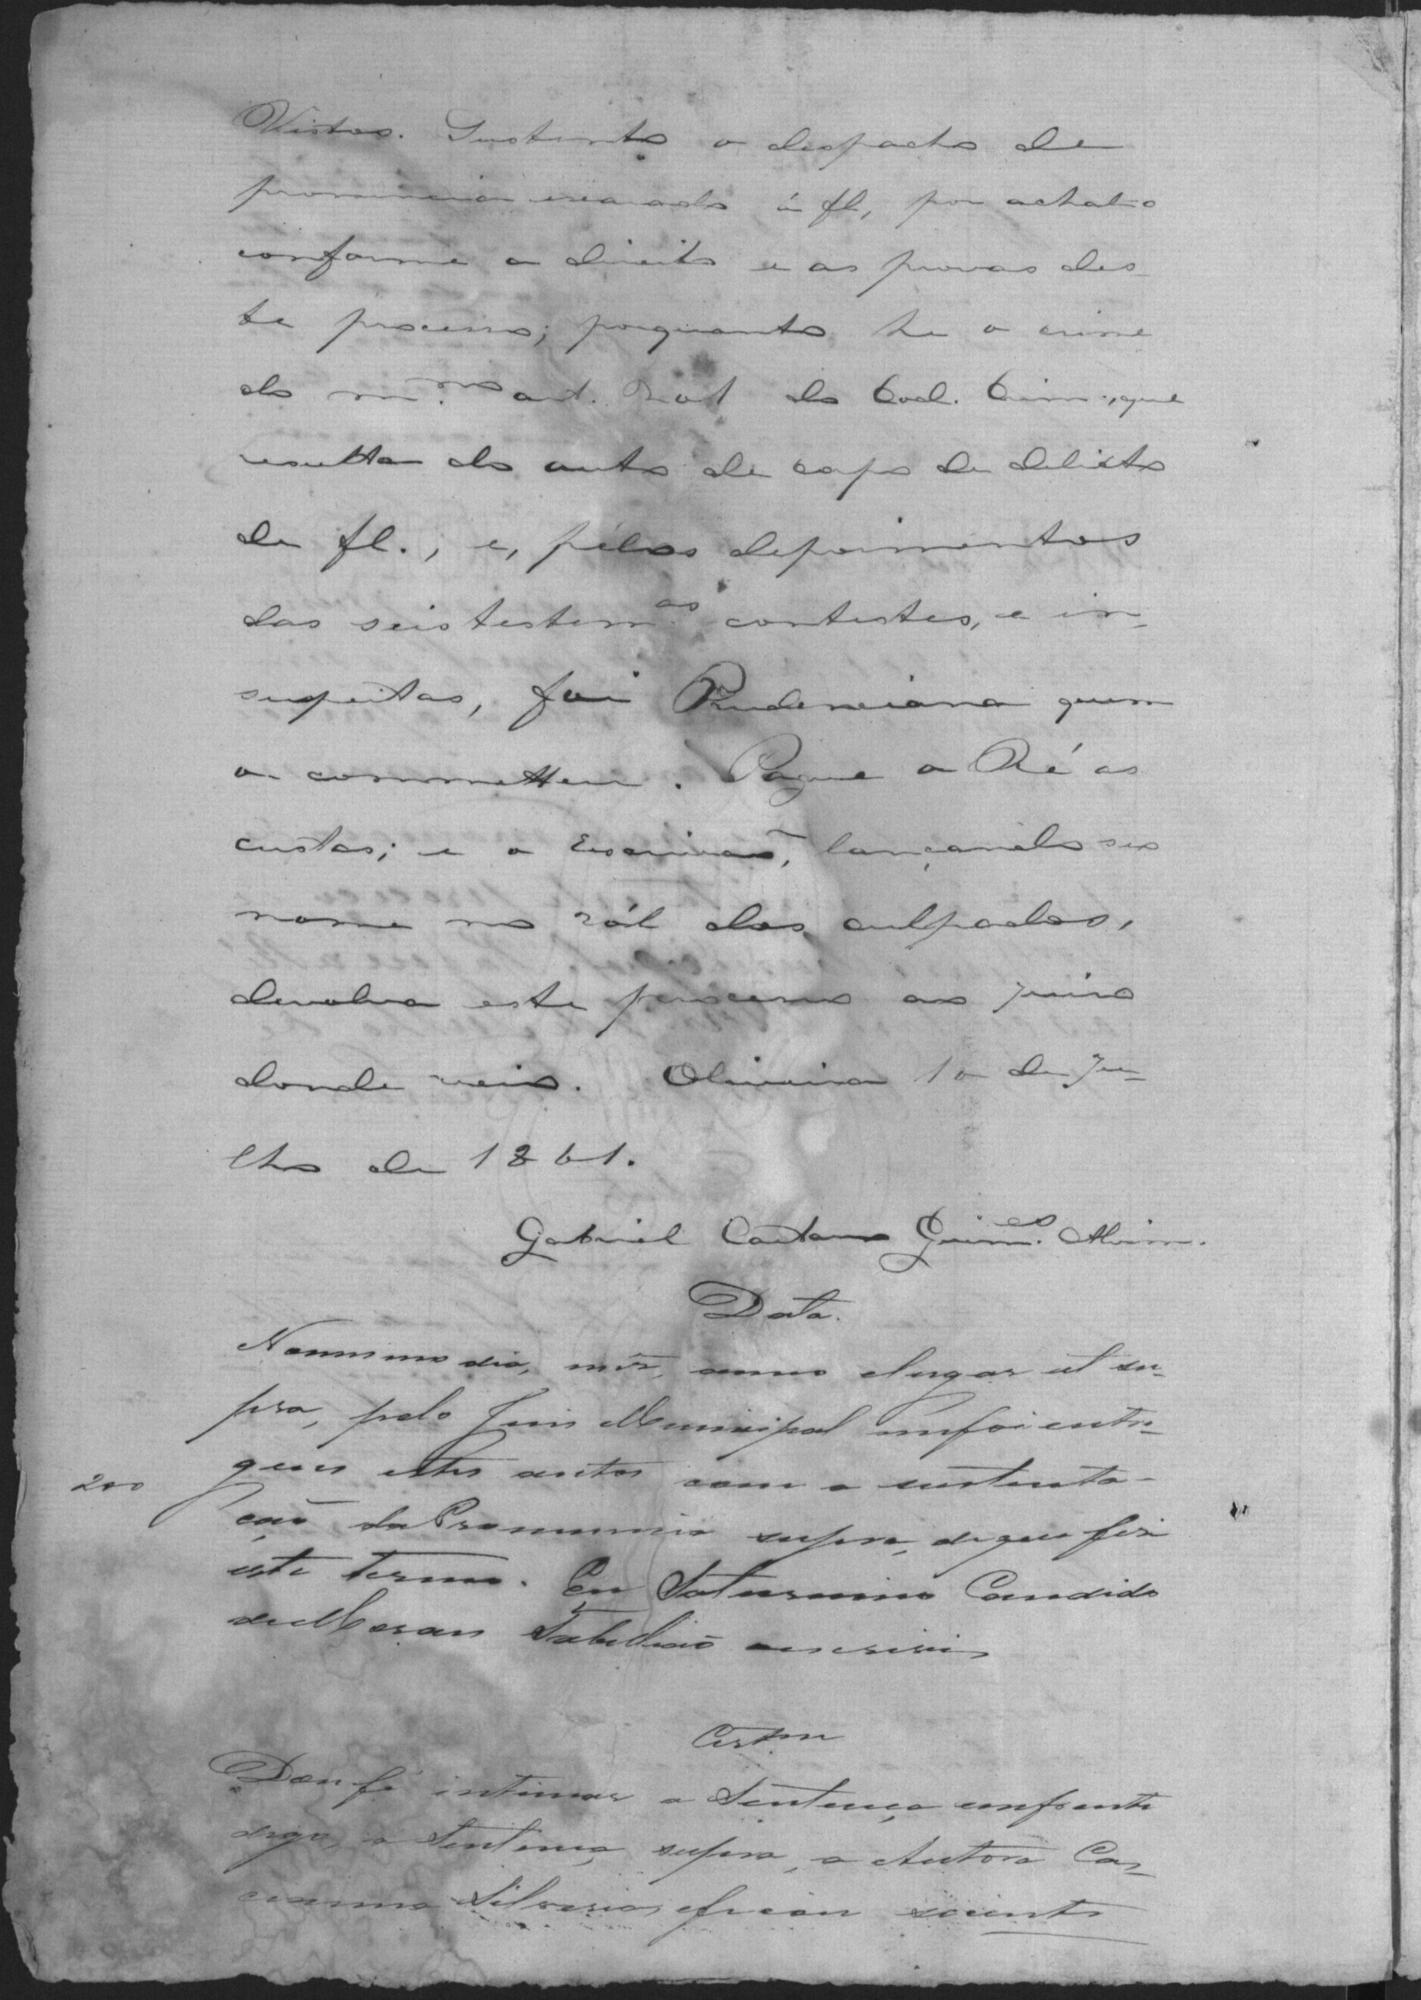 Vistos. Sustento o despacho de
pronuncia exarado á fl, por achal-o
conforme o direito e as provas des-
te processo; porquanto he o crime
do m.mo art. 201 do Cod. Crim., que
resulta do auto de corpo de delicto
de fl., e, pelos depoimentos
das seis testem.as contestes, e in-
suspeitas, foi Prudenciana quem
o commetteu. Pague a Ré as
custas; e o Escrivaõ, lançando seo
nome no ról dos culpados,
devolva este processo ao Juizo
donde veio. Oliveira 10 de Ju-
lho de 1861.
Gabriel Caetano Guim.es Alvim.
Data.
No mesmo dia, mêz, anno e lugar ut su-
pra, pelo Juis Municipal me foi entre-
gues estes autos com a sustenta-
200
çaõ da Pronuncia supra, de que fis
este termo. Eu Saturnino Candido
de Moraes Tabelliaõ o escrivi
Certam
Dou fé intimar a Sentença emfrente
digo, a Sentença supra, a Autora
Silveria, e ficou sciente